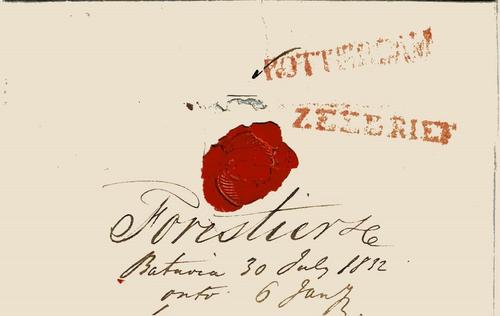 ROTTERDAM
ZEEBRIEF
Forestier
Batavia 30 July 1832
ontv. 6 Jan